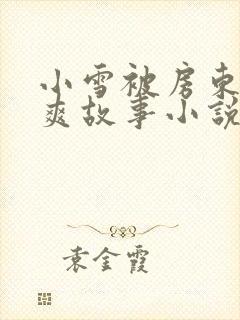 小雪被房东
爽故事小说
袁金霞